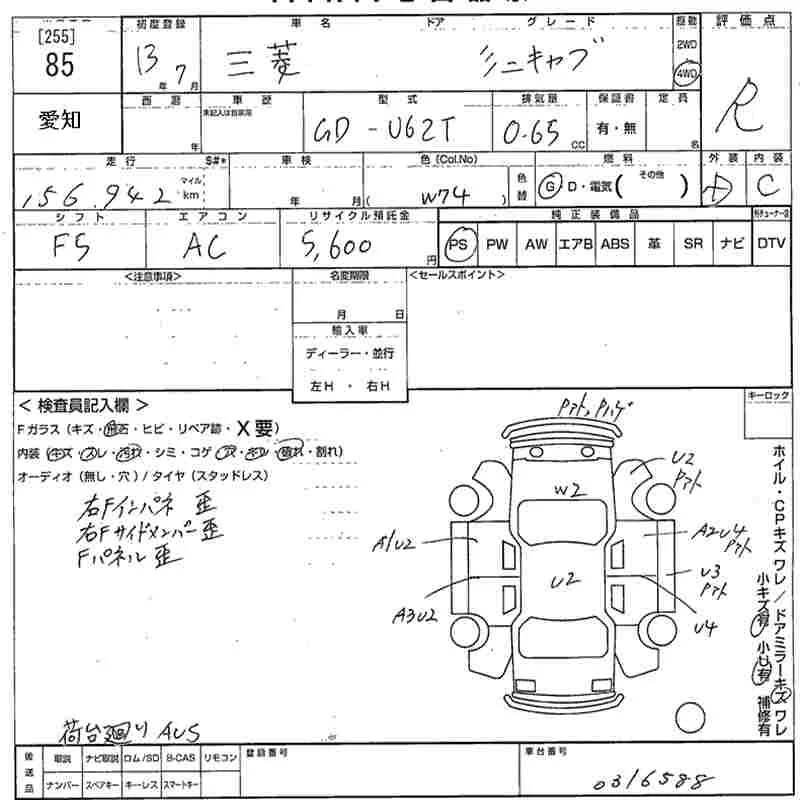 [255]
85
初度登録
車名
ドア
グレード
駆動
評価点
13年 7月
三菱
ミニキャブ
2WD
4WD
R
愛知
年
車歴
未記入は自家用
型式
排気量
保証書
定員
GD - U62T
0.65 CC
有・無
名
走行
S#*
車検
色(Col.No)
燃料
外装
内装
156,942
マイル
km
年 月
( W74 )
色替
G D・電気( その他 )
D
C
シフト
エアコン
リサイクル預託金
純正装備品
F5
AC
5,600 円
PS PW AW エアB ABS 革 SR ナビ DTV
<注意事項>
名変期限
<セールスポイント>
月 日
輸入車
ディーラー・並行
左H ・ 右H
< 検査員記入欄 >
キーロック
Fガラス(キズ・飛石・ヒビ・リペア跡・X要)
内装(キズ・スレ・汚れ・シミ・コゲ・穴・ネジ・破れ・割れ)
オーディオ(無し・穴)/タイヤ(スタッドレス)
右Fインパネ 歪
右Fサイドメンバー 歪
Fパネル 歪
U2
W2
A1U2
A2U4
U2
U3
A3U2
U4
ホイル・CPキズ ワレ/ドアミラーキズ ワレ
小キズ有 小U有 補修有
荷台廻り AUS
後送品
取説 ナビ取説 ロム/SD B-CAS リモコン
登録番号
車台番号
ナンバー スペアキー キーレス スマートキー
0316588